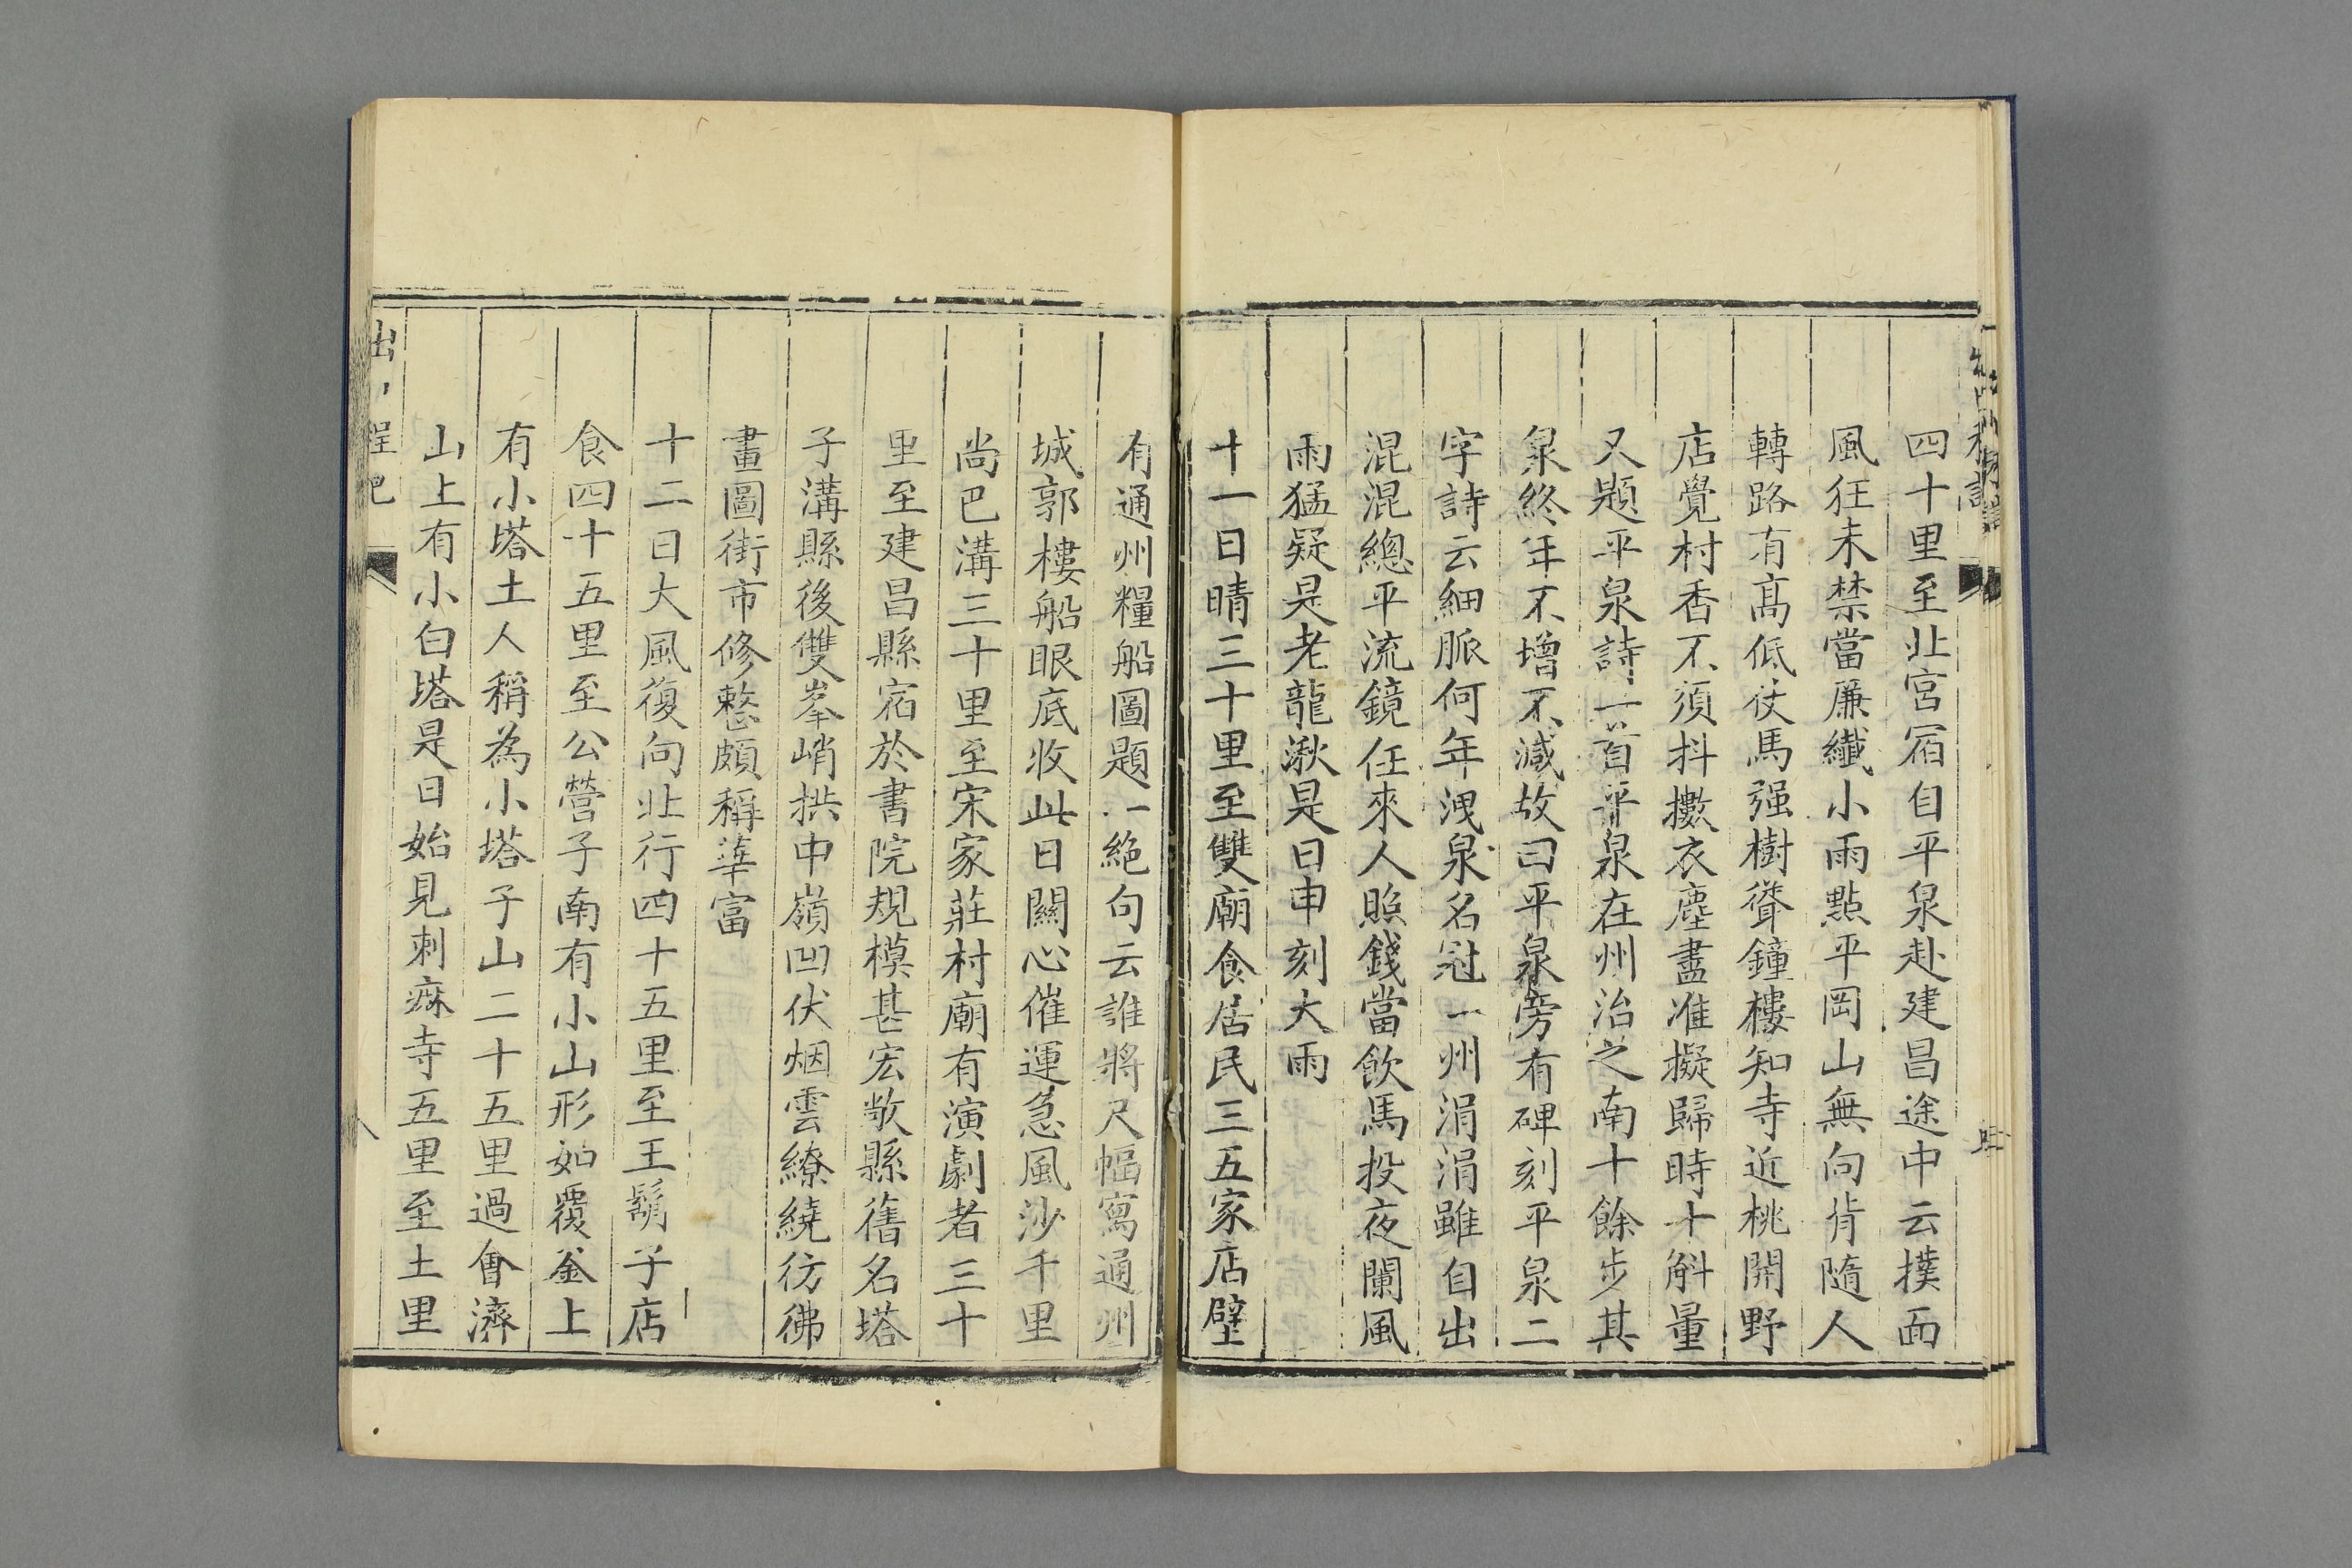 四十里至北宮宿自平泉赴建昌途中云撲面
風狂未禁當廉纖小雨點平岡山無向背隨人
轉路有髙低仗馬强樹聳鐘樓知寺近桃開野
店覺村香不須抖擻衣塵盡准擬歸時十斛量
又題平泉詩一首平泉在州治之南十餘步其
泉終年不增不減故曰平泉旁有碑刻平泉二
字詩云細脈何年洩泉名冠一州涓涓雖自出
混混總平流鏡任來人照錢當飲馬投夜闌風
雨猛疑是老龍湫是日申刻大雨
十一日晴三十里至雙廟食居民三五家店壁
有通州糧船圖題一絕句云誰將尺幅寫通州
城郭樓船眼底收此日關心催運急風沙千里
尚巴溝三十里至宋家莊村廟有演劇者三十
里至建昌縣宿於書院規模甚宏敞縣舊名塔
子溝縣後雙峯峭拱中嶺凹伏烟雲繚繞彷彿
畫圖街市修整頗稱華富
十二日大風復向北行四十五里至王鬍子店
食四十五里至公營子南有小山形如覆釜上
有小塔土人稱為小塔子山二十五里過會濟
山上有小白塔是日始見刺痳寺五里至土里
程